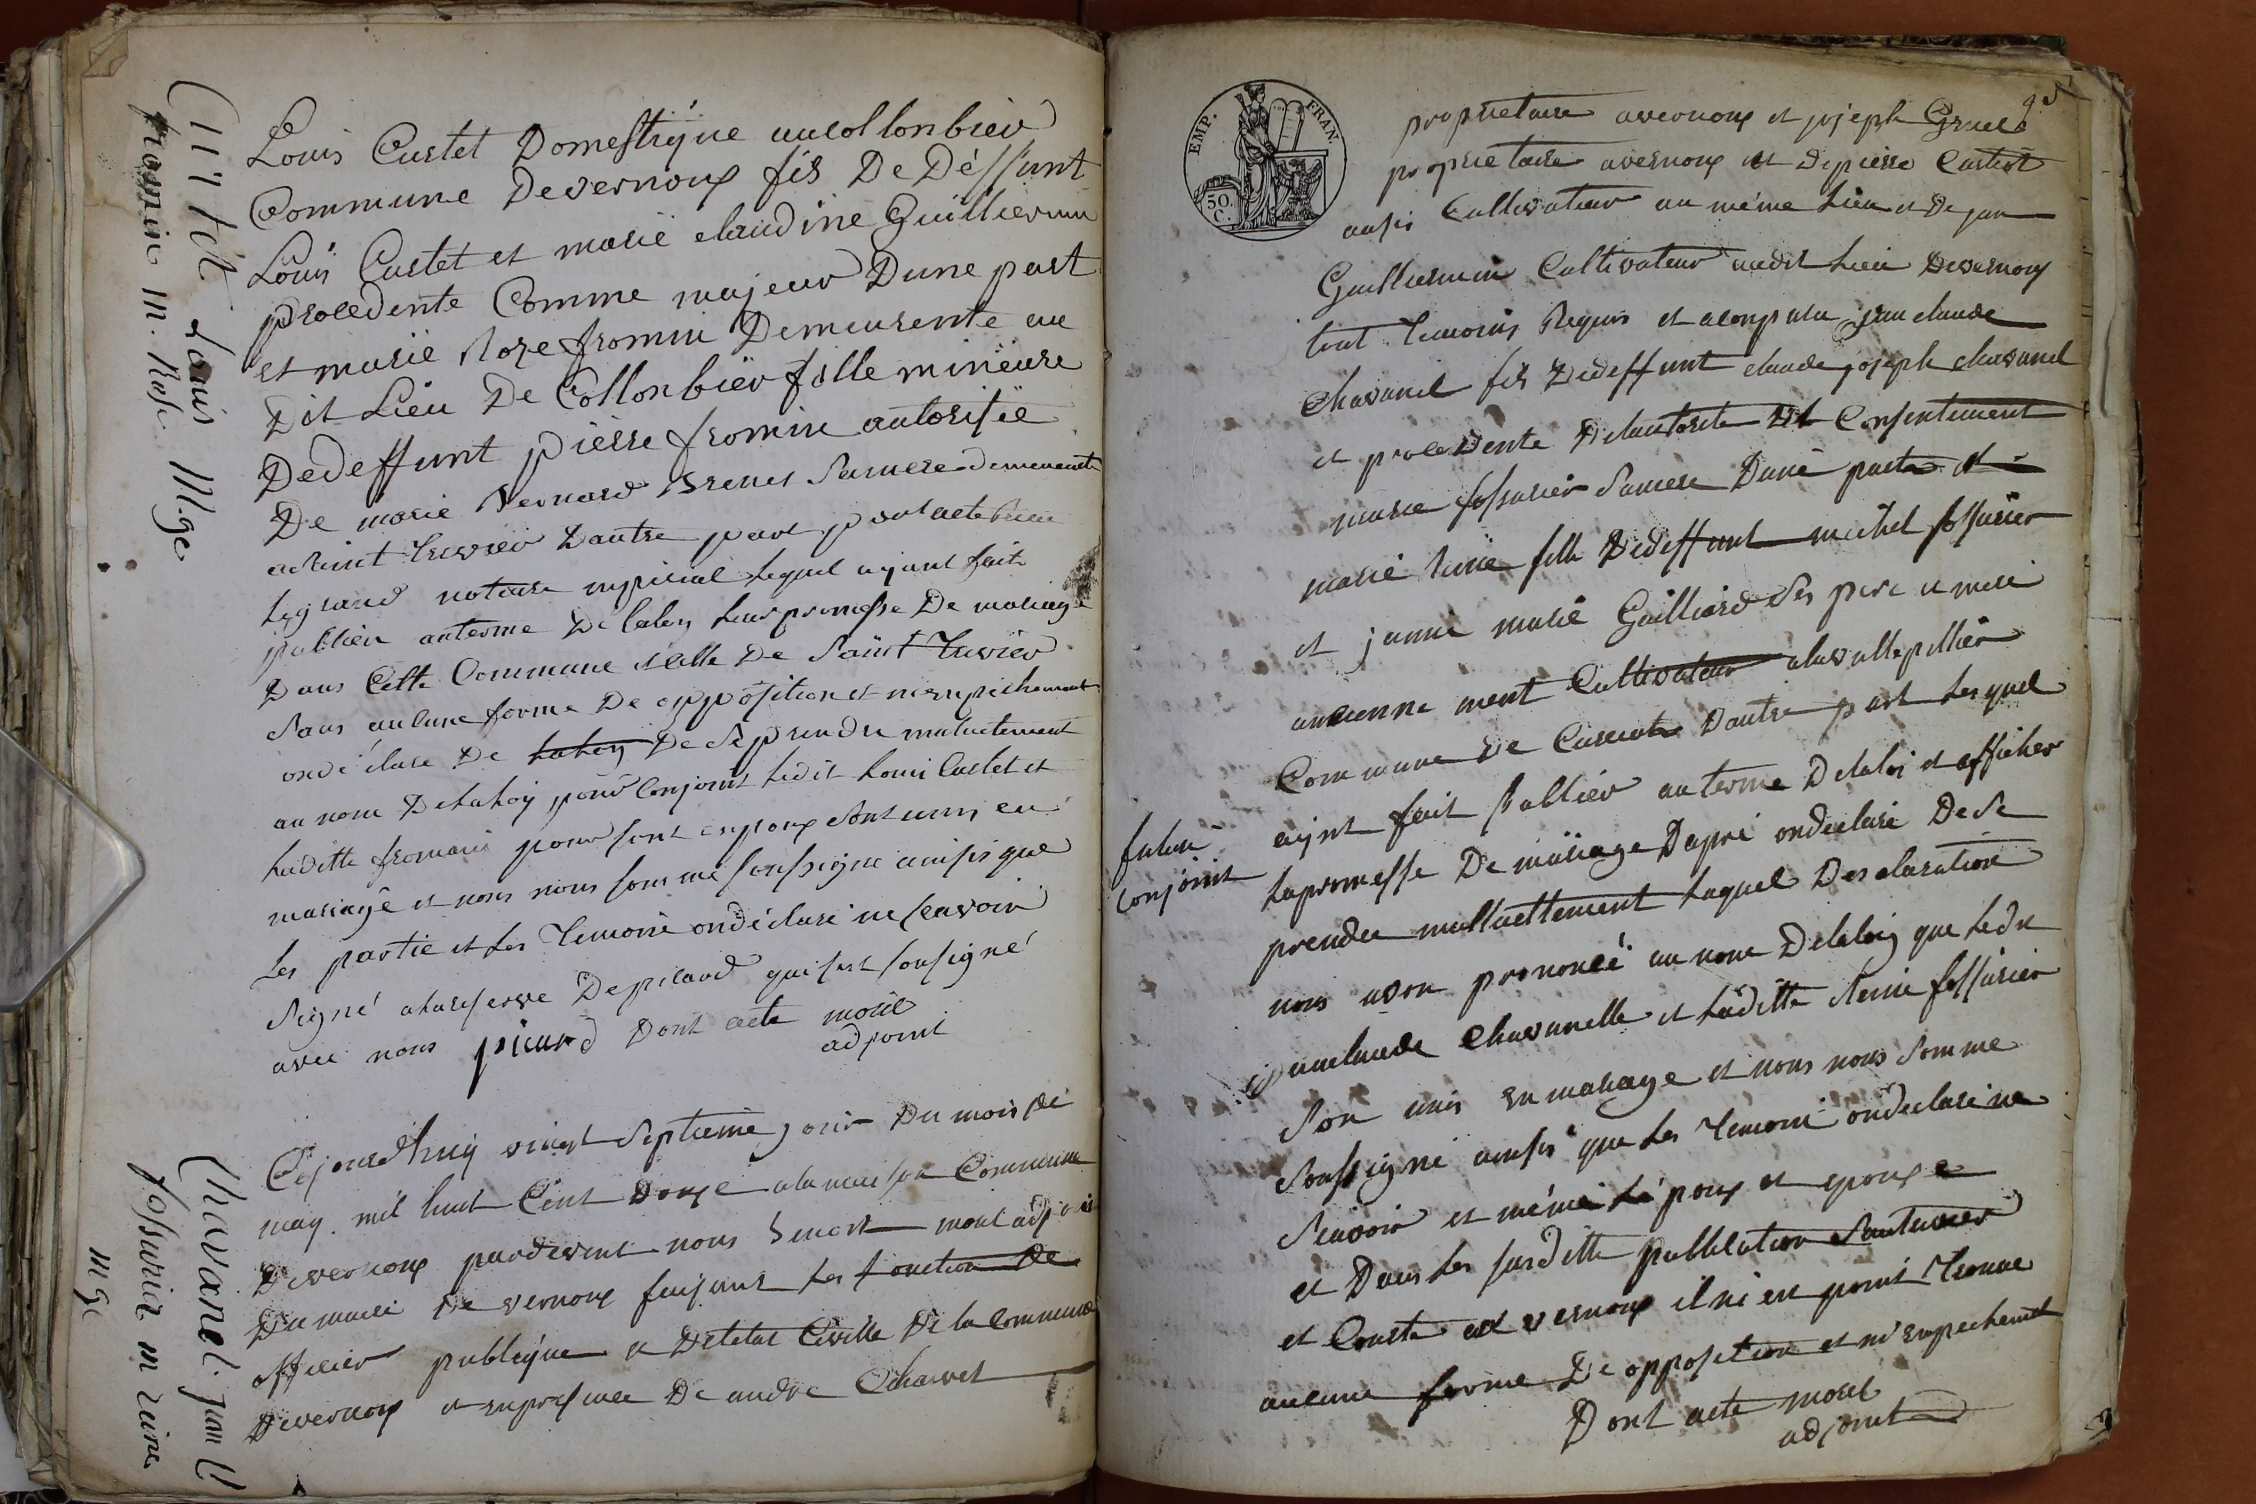 Curtét Louis M.ge
fromin m. Rose
Louis Curtet Domestique au collonbier
Commune Devernoux fils De Déffunt
Louis Curtet et marie claudine Guilliermin
procedente Comme majeur Dune part
et marie Roze fromin Demeurente au
Dit Lieu De Collonbier fille mineure
Dedeffunt pierre fromin autorisée
De marie Bernard Brenet Samere demeurente
asaint truvier Dautre part par acte Reçu
Legrand notaire imperial Lequel ayant fait
publier auterme De laloy leur promesse De mariage
Dans Cette Commune et Celle De Saint Truvier
Sans aucune forme De opposition et ni empechement
ondéclare De laloy De Se prendre mutuctement
au nom Delaloy pour Conjoint Ledit Louis Curtet et
Laditte fromain pour sont epoux sont unis en
mariage et nous nous somme soussigne ainsis que
Les partie et les Temoin ondéclaré ne scavoir
Signé alareserve De picard qui sest sousigné
avec nous picard Dont acte morel
adjoint
Chavanel jean C
fossurier m reine
m.ge
Cejourdhuy vingt Septieme jour Du mois De
may mil huit Cent Douze ala maison Commune
Devernoux pardevant nous Benoit morel adjoint
Du maire De vernoux faisant les fonction De
officier publique et Detetat Civille De la Commune
Devernoux et enpresence De andre Charvet
EMP. FRAN.
50. C.
proprietaire avernoux et joseph Gruel
proprietaire avernoux et De pierre Curtet
ausis Cultivateur au même Lieu et De jan
Guilliermin Cultivateur audit Lieu Devernoux
tout temoins Requis et a conparu jean claude
Chavanel fils Dedeffunt claude joseph chavanel
et procedente Delautorite et Consentement
marie fossurier Samere Dune parte et
marie Reine fille Dedeffunt michel fossurier
et janne marie Guilliard Ses pere et mere
ancienne ment Cultivateur alavallepellier
Commune De Curciat Dautre part Lesquel
futur
conjoint
ayint fait Publier auterme Delaloi et afficher
Lapromesse De mariage Dapré ondeclare De Se
prendre mulluettement Laquel Desclaration
nous avon prononcé au nom Delaloy que Ledit
jeanclaude Chavanelle et Laditte Reine fossurier
Son unis en mariage et nous nous Somme
Soussigné ainsis que Les Temoin ondeclare ne
Scavoir et même Lé poux et epouxe
et Dans les susditte publication Saintruvier
et Curciat et vernoux il ni en point Trouve
aucune forme De opposition et ni empechement
Dont acte morel
adjoint